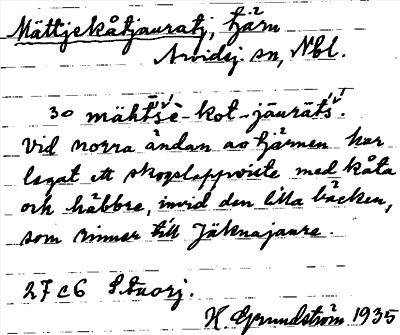 Mättjekåtjauratj, tjärn
Arvidsj. sn, Nbl.
30 mähtsè-kot-jäuràts.
Vid norra ändan av tjärnen har
legat ett skogslappviste med kåta
och häbbre, invid den lilla bäcken,
som rinner till Jäknajaure.
27 c6 Storj.
H. Grundström 1935